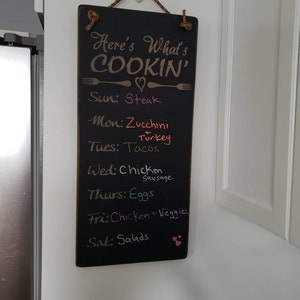 Here's What's
COOKIN'
Sun: Steak
Mon: Zucchini
+ Turkey
Tues: Tacos
Wed: Chicken
Sausage
Thurs: Eggs
Fri: Chicken + Veggies
Sat: Salads